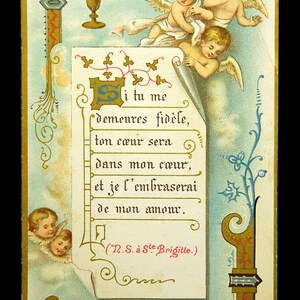 Si tu me
demeures fidèle,
ton cœur sera
dans mon cœur,
et je l'embraserai
de mon amour.
(N. S. à Ste Brigitte.)